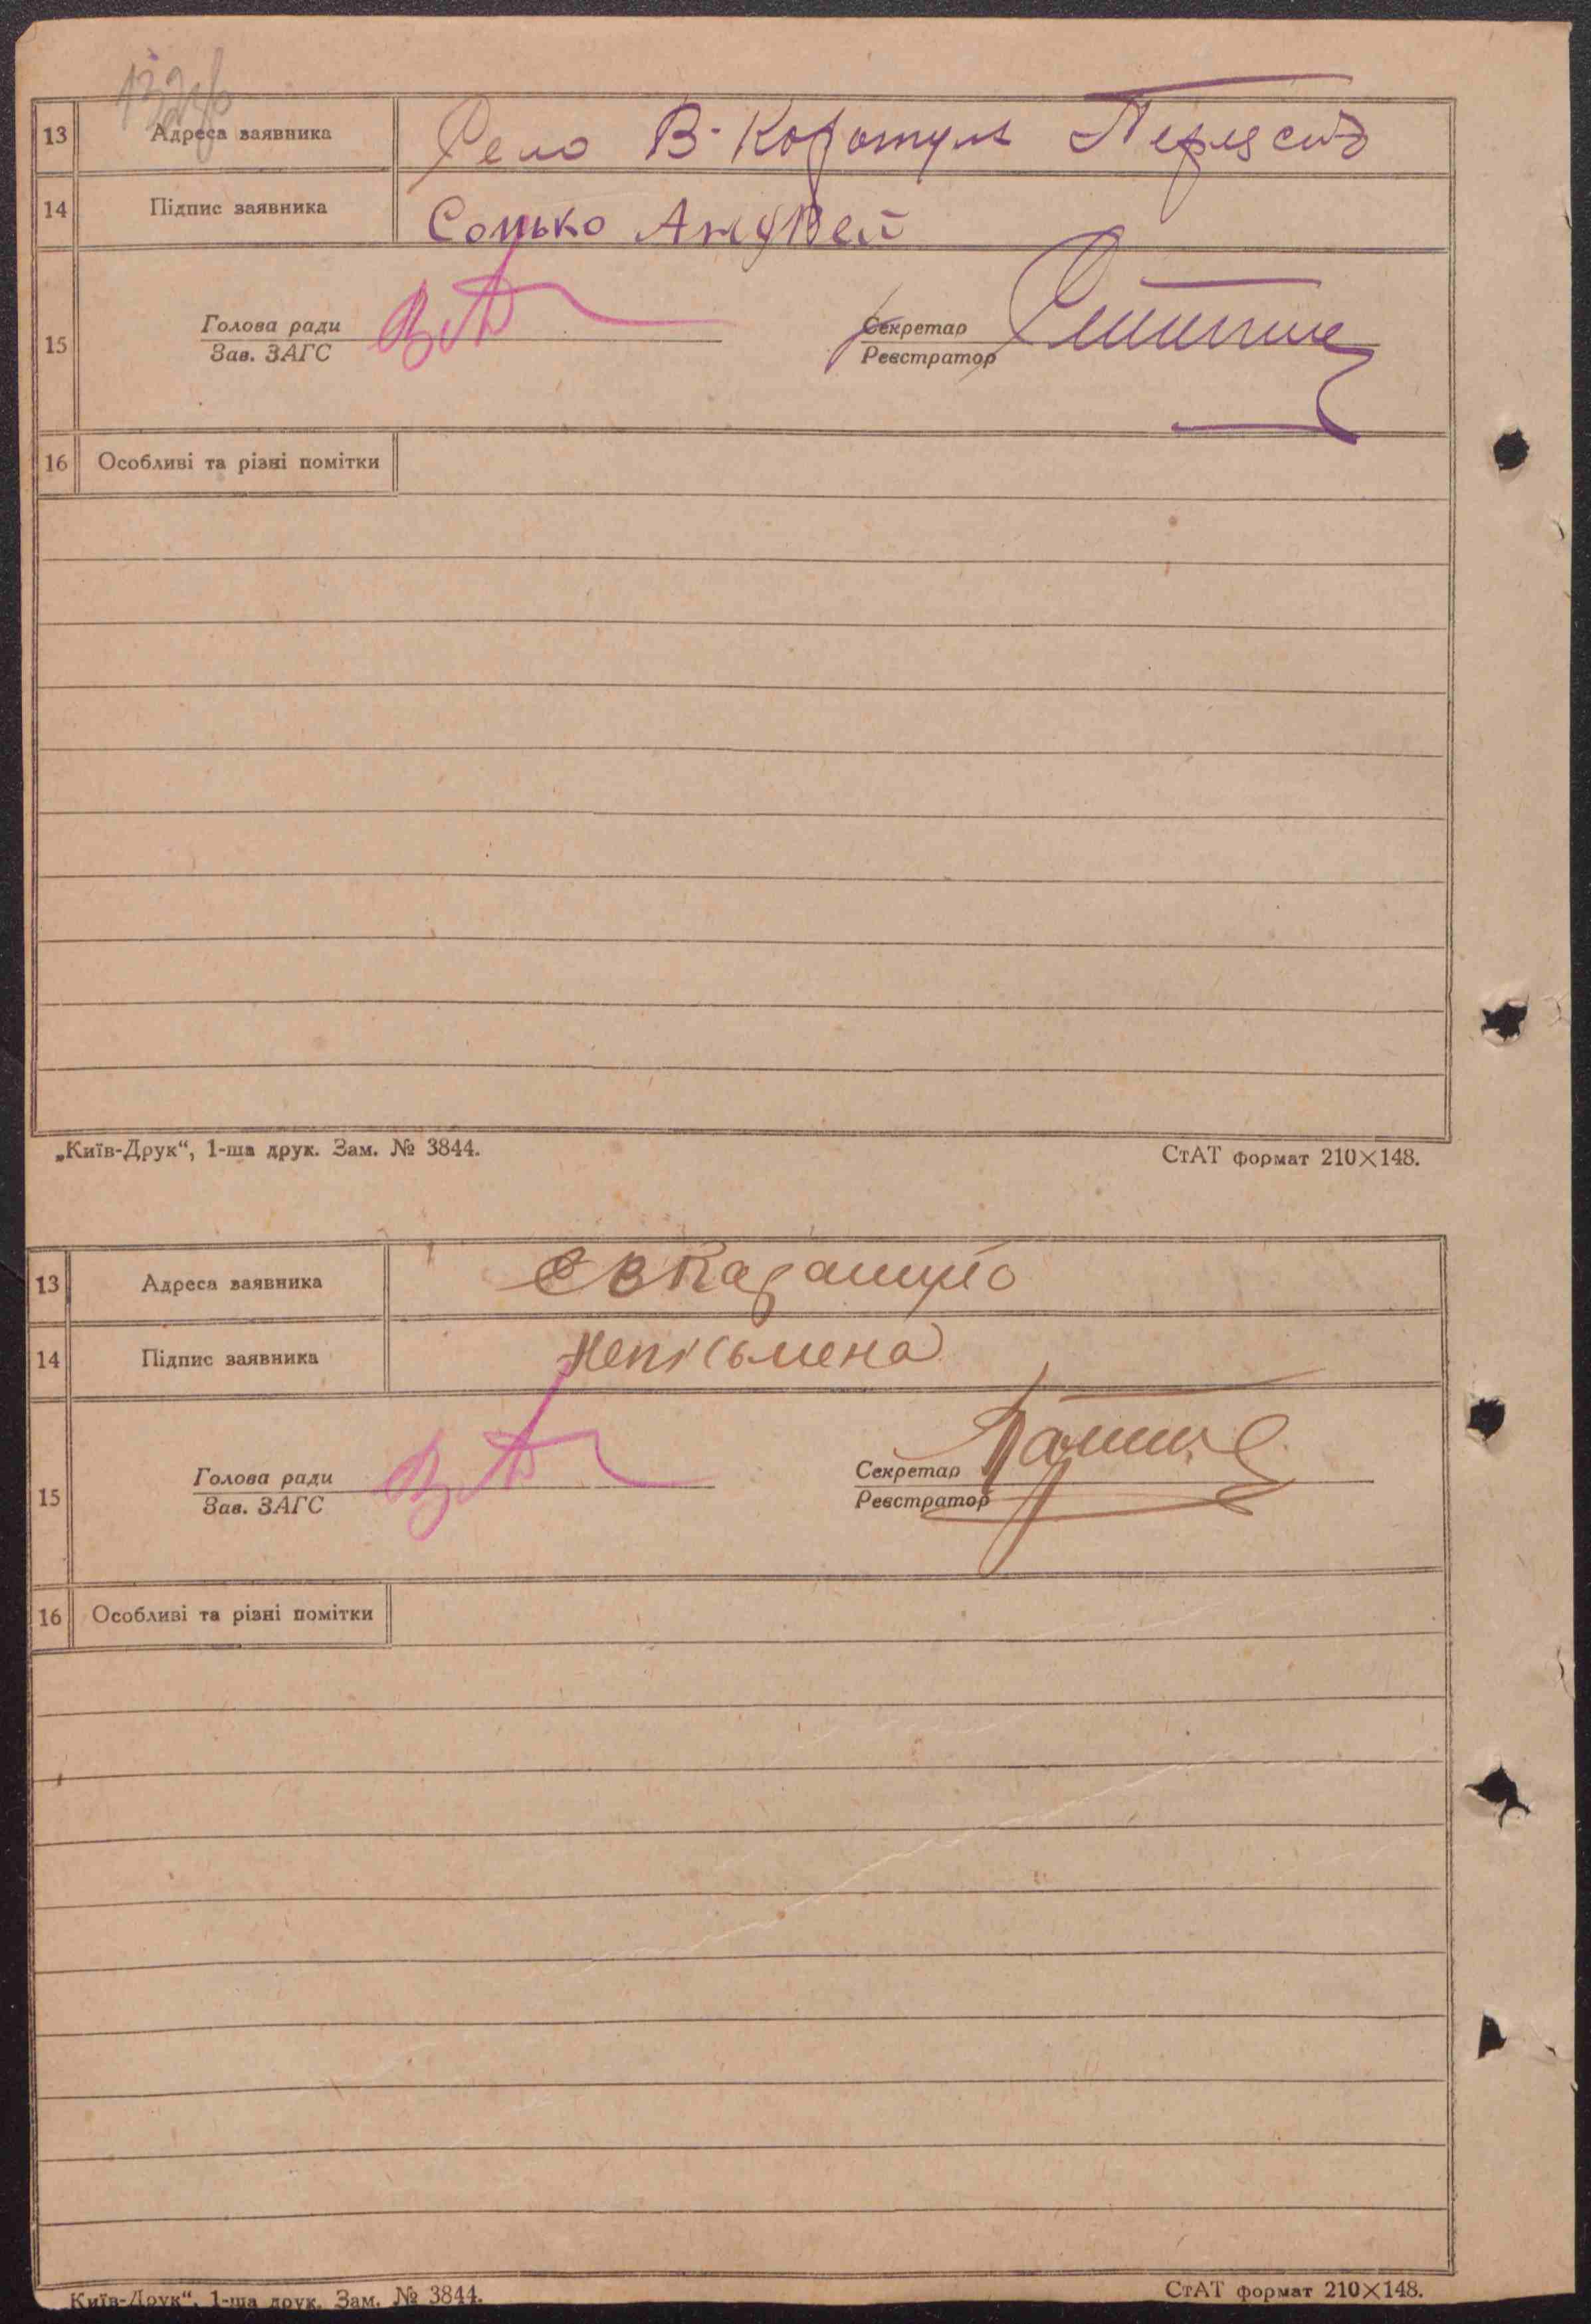 13 Адреса заявника Село В-Каратуль
14 Підпис заявника Сонько Андрей
Голова ради Секретар
15
Зав. ЗАГС Реєстратор
16 Особливі та різні помітки
„Київ-Друк“, 1-ша друк. Зам. № 3844. СтАТ формат 210×148.
13 Адреса заявника
14 Підпис заявника Непісьмена
Голова ради Секретар
15
Зав. ЗАГС Реєстратор
16 Особливі та різні помітки
Київ-Друк“, 1-ша друк. Зам. № 3844. СтАТ формат 210×148.